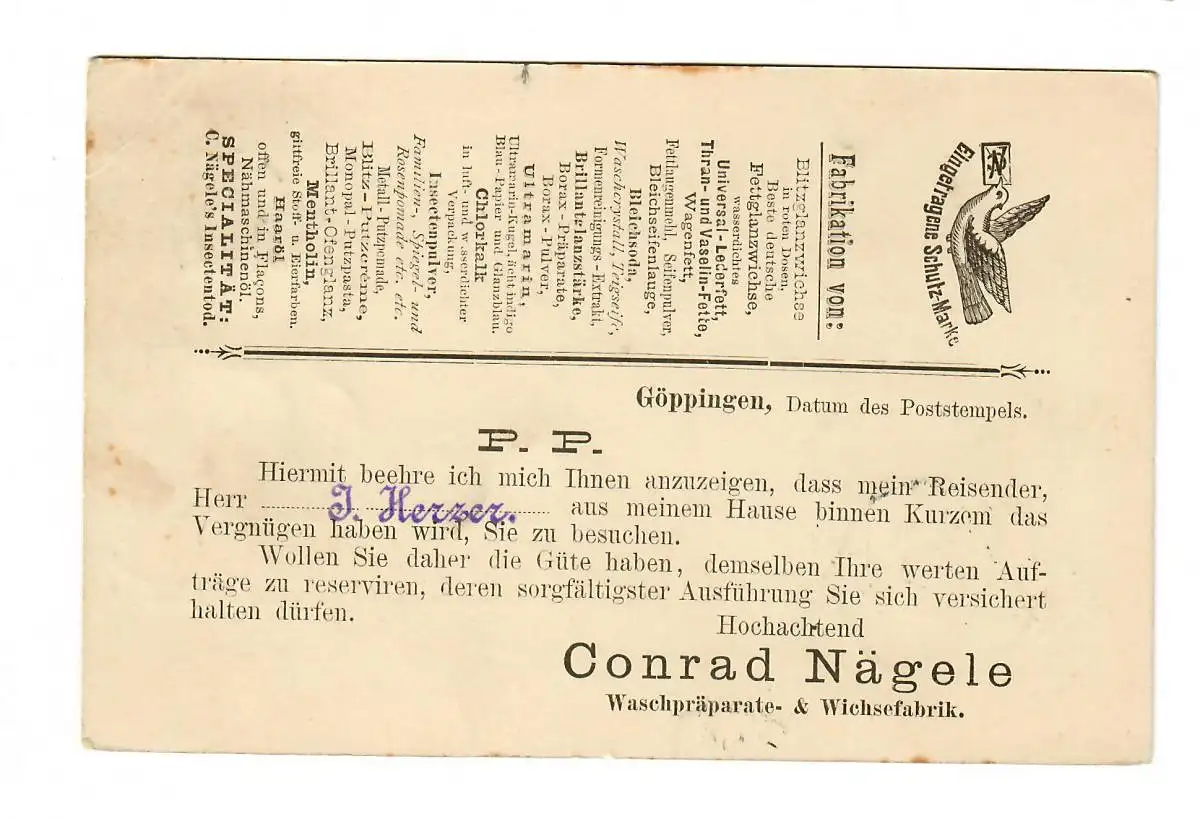 Eingetragene Schutz-Marke
Fabrikation von:
Blitzglanzwichse
in roten Dosen,
Beste deutsche
Fettglanzwichse,
wasserdichtes
Universal-Lederfett,
Thran- und Vaselin-Fette,
Wagenfett,
Fettlaugenmehl, Seifenpulver,
Bleichseifenlauge,
Bleichsoda,
Waschcrystall, Teigseife,
Formenreinigungs-Extrakt,
Brillantglanzstärke,
Borax-Präparate,
Borax-Pulver,
Ultramarin,
Ultramarin-Kugel, ächt indigo
Blau-Papier und Glanzblau.
Chlorkalk
in luft- und wasserdichter
Verpackung,
Insectenpulver,
Familien-, Spiegel- und
Rosenpomade etc. etc.
Metall-Putzpomade,
Blitz-Putzcrême,
Monopal-Putzpasta,
Brillant-Ofenglanz,
Mentholin,
giftfreie Stoff- u. Eierfarben.
Haaröl
offen und in Flaçons,
Nähmaschinenöl.
SPECIALITÄT:
C. Nägele's Insectentod.
Göppingen, Datum des Poststempels.
P. P.
Hiermit beehre ich mich Ihnen anzuzeigen, dass mein Reisender,
Herr J. Herzer. aus meinem Hause binnen Kurzem das
Vergnügen haben wird, Sie zu besuchen.
Wollen Sie daher die Güte haben, demselben Ihre werten Auf-
träge zu reserviren, deren sorgfältigster Ausführung Sie sich versichert
halten dürfen.
Hochachtend
Conrad Nägele
Waschpräparate- & Wichsefabrik.